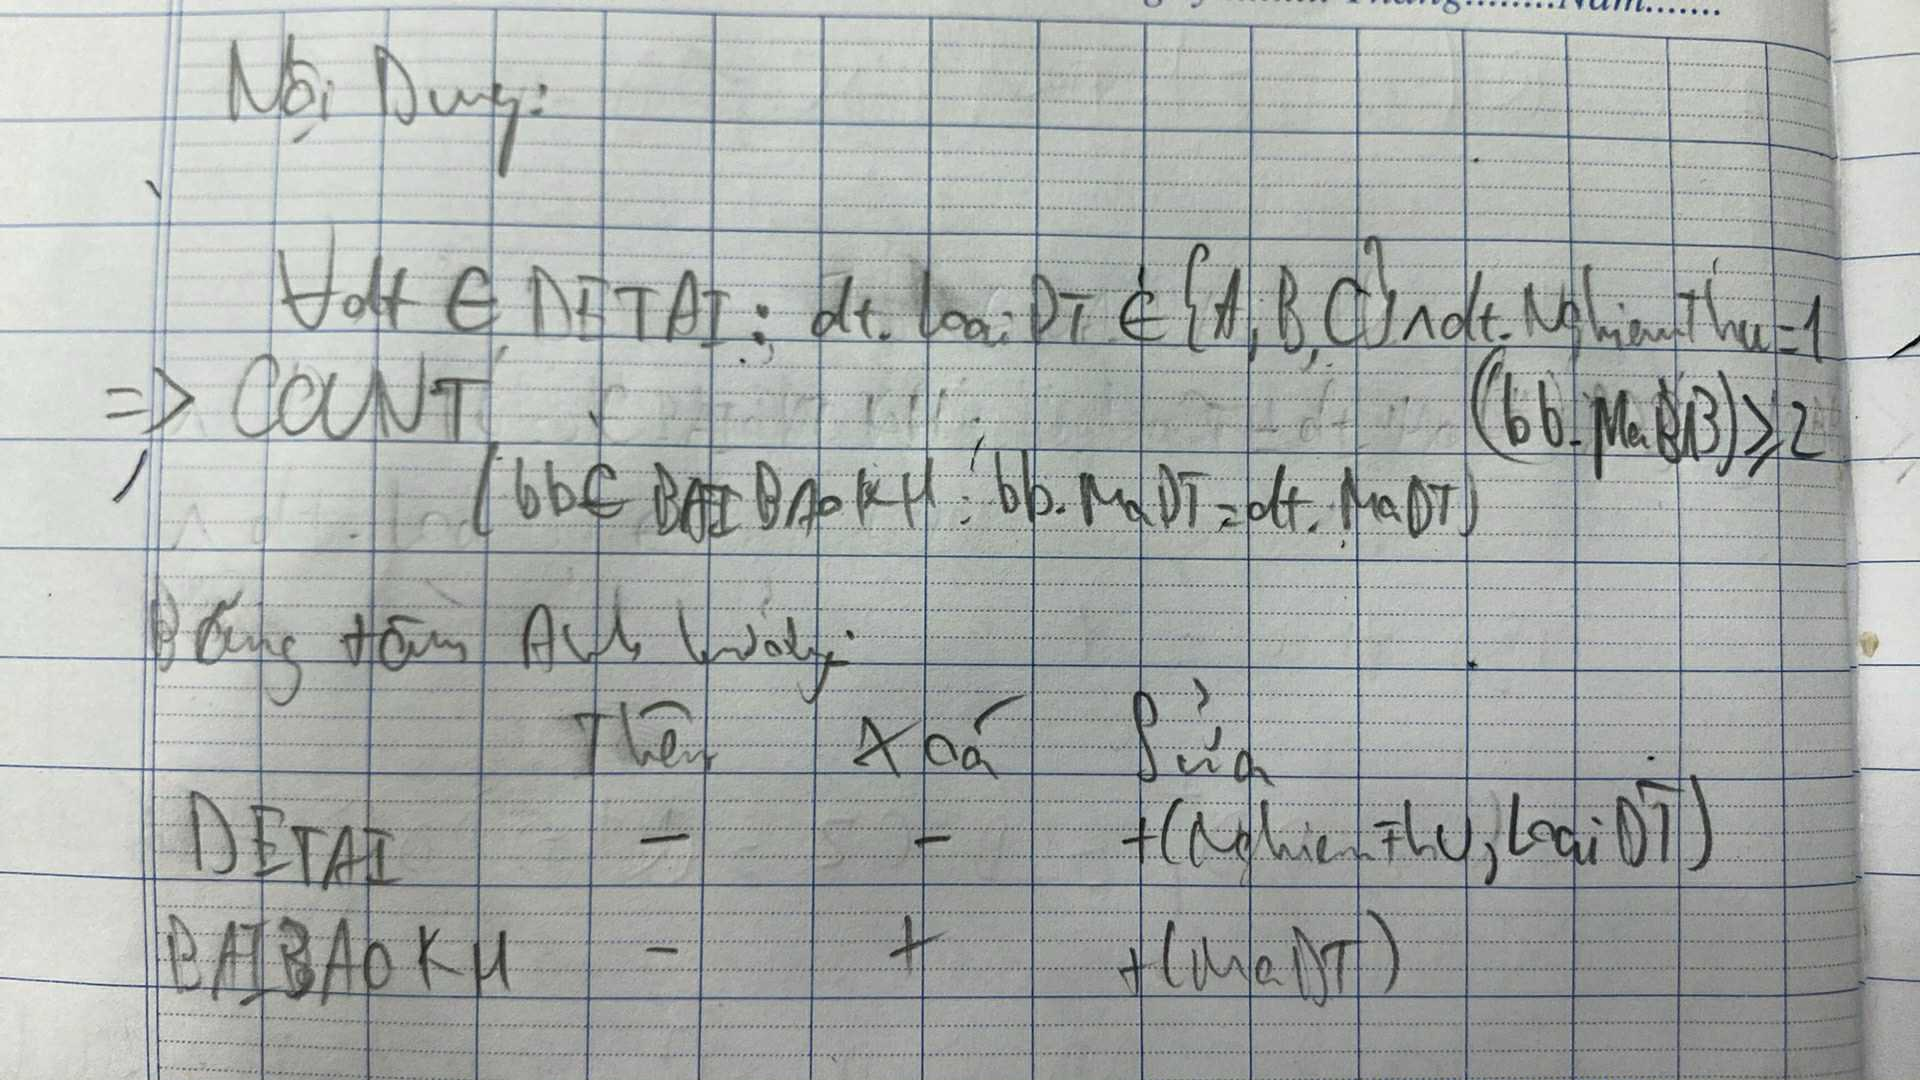 Tháng.........Năm.......
Nội Dung:
∀dt ∈ DETAI: dt.LoaiDT ∈ {A, B, C} ∧ dt.NghiemThu = 1
=> COUNT (bb.MaBB) ≥ 2
(bb ∈ BAIBAOKH : bb.MaDT = dt.MaDT)
Bảng tầm Ảnh hưởng:
Thêm Xoá Sửa
DETAI - - +(NghiemThu, LoaiDT)
BAIBAOKH - + +(MaDT)